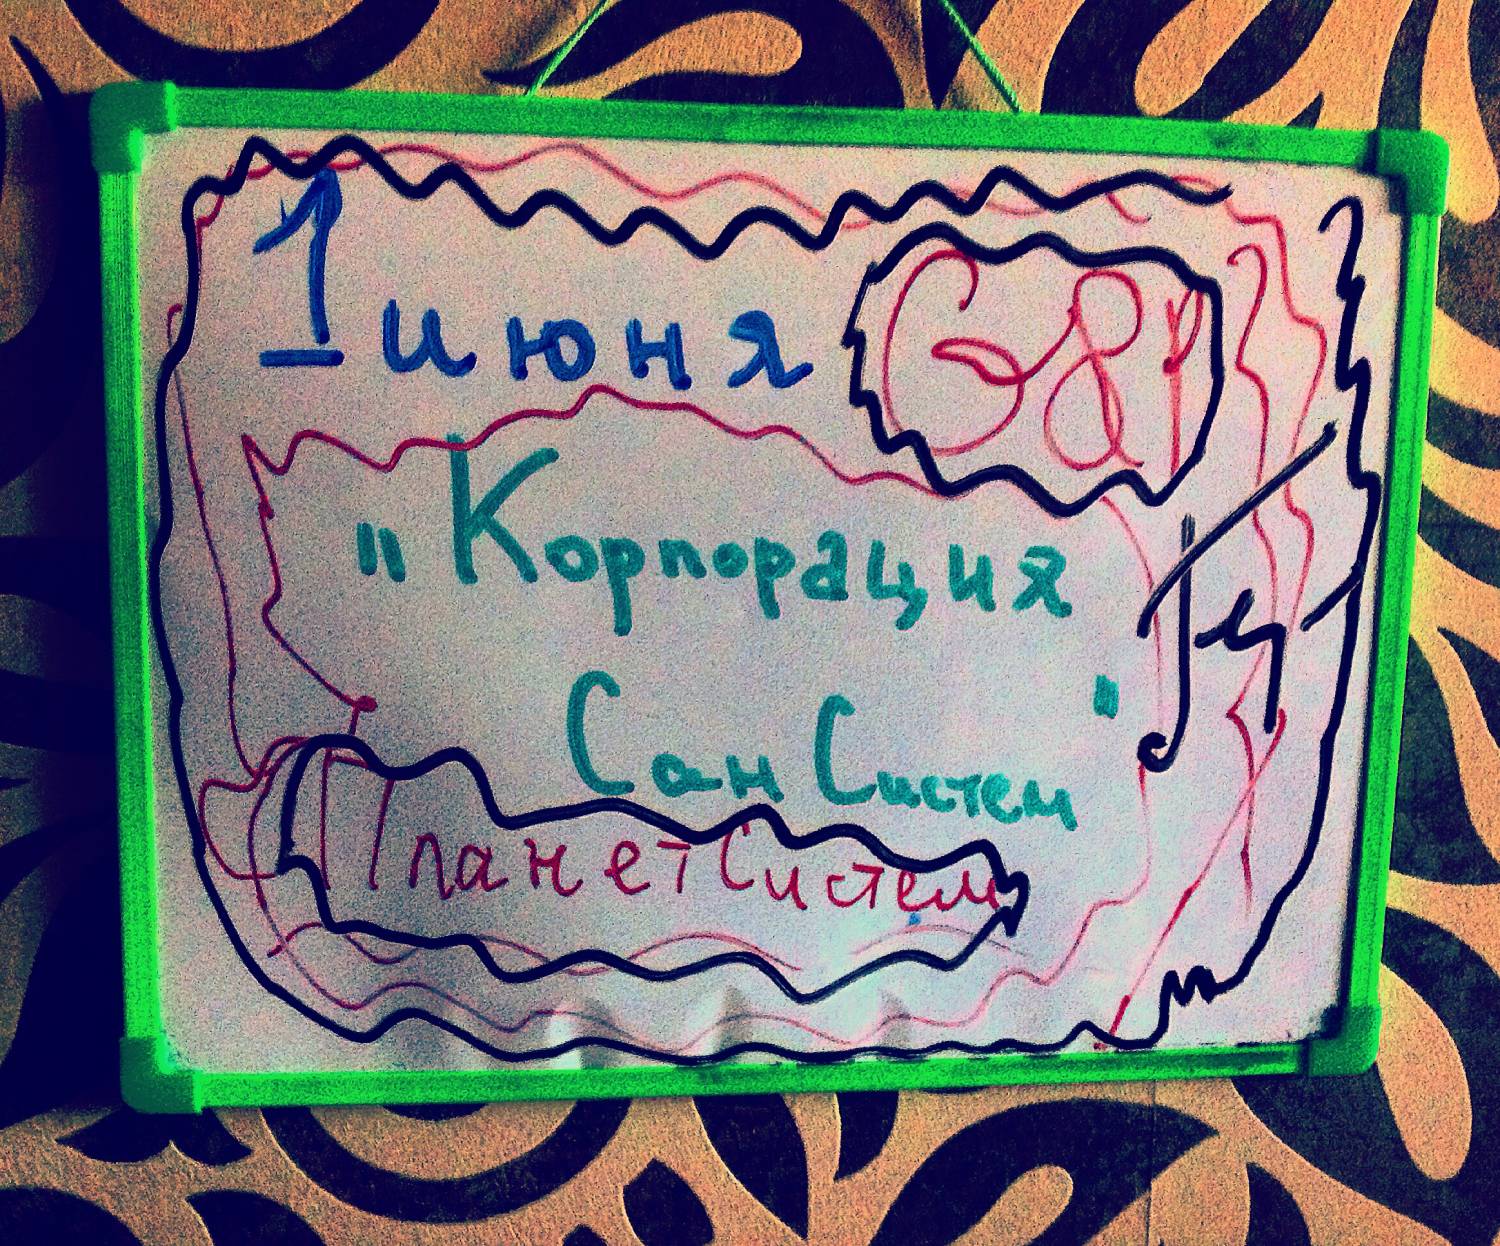 1 июня
"Корпорация
СанСистем"
ПланетСистем